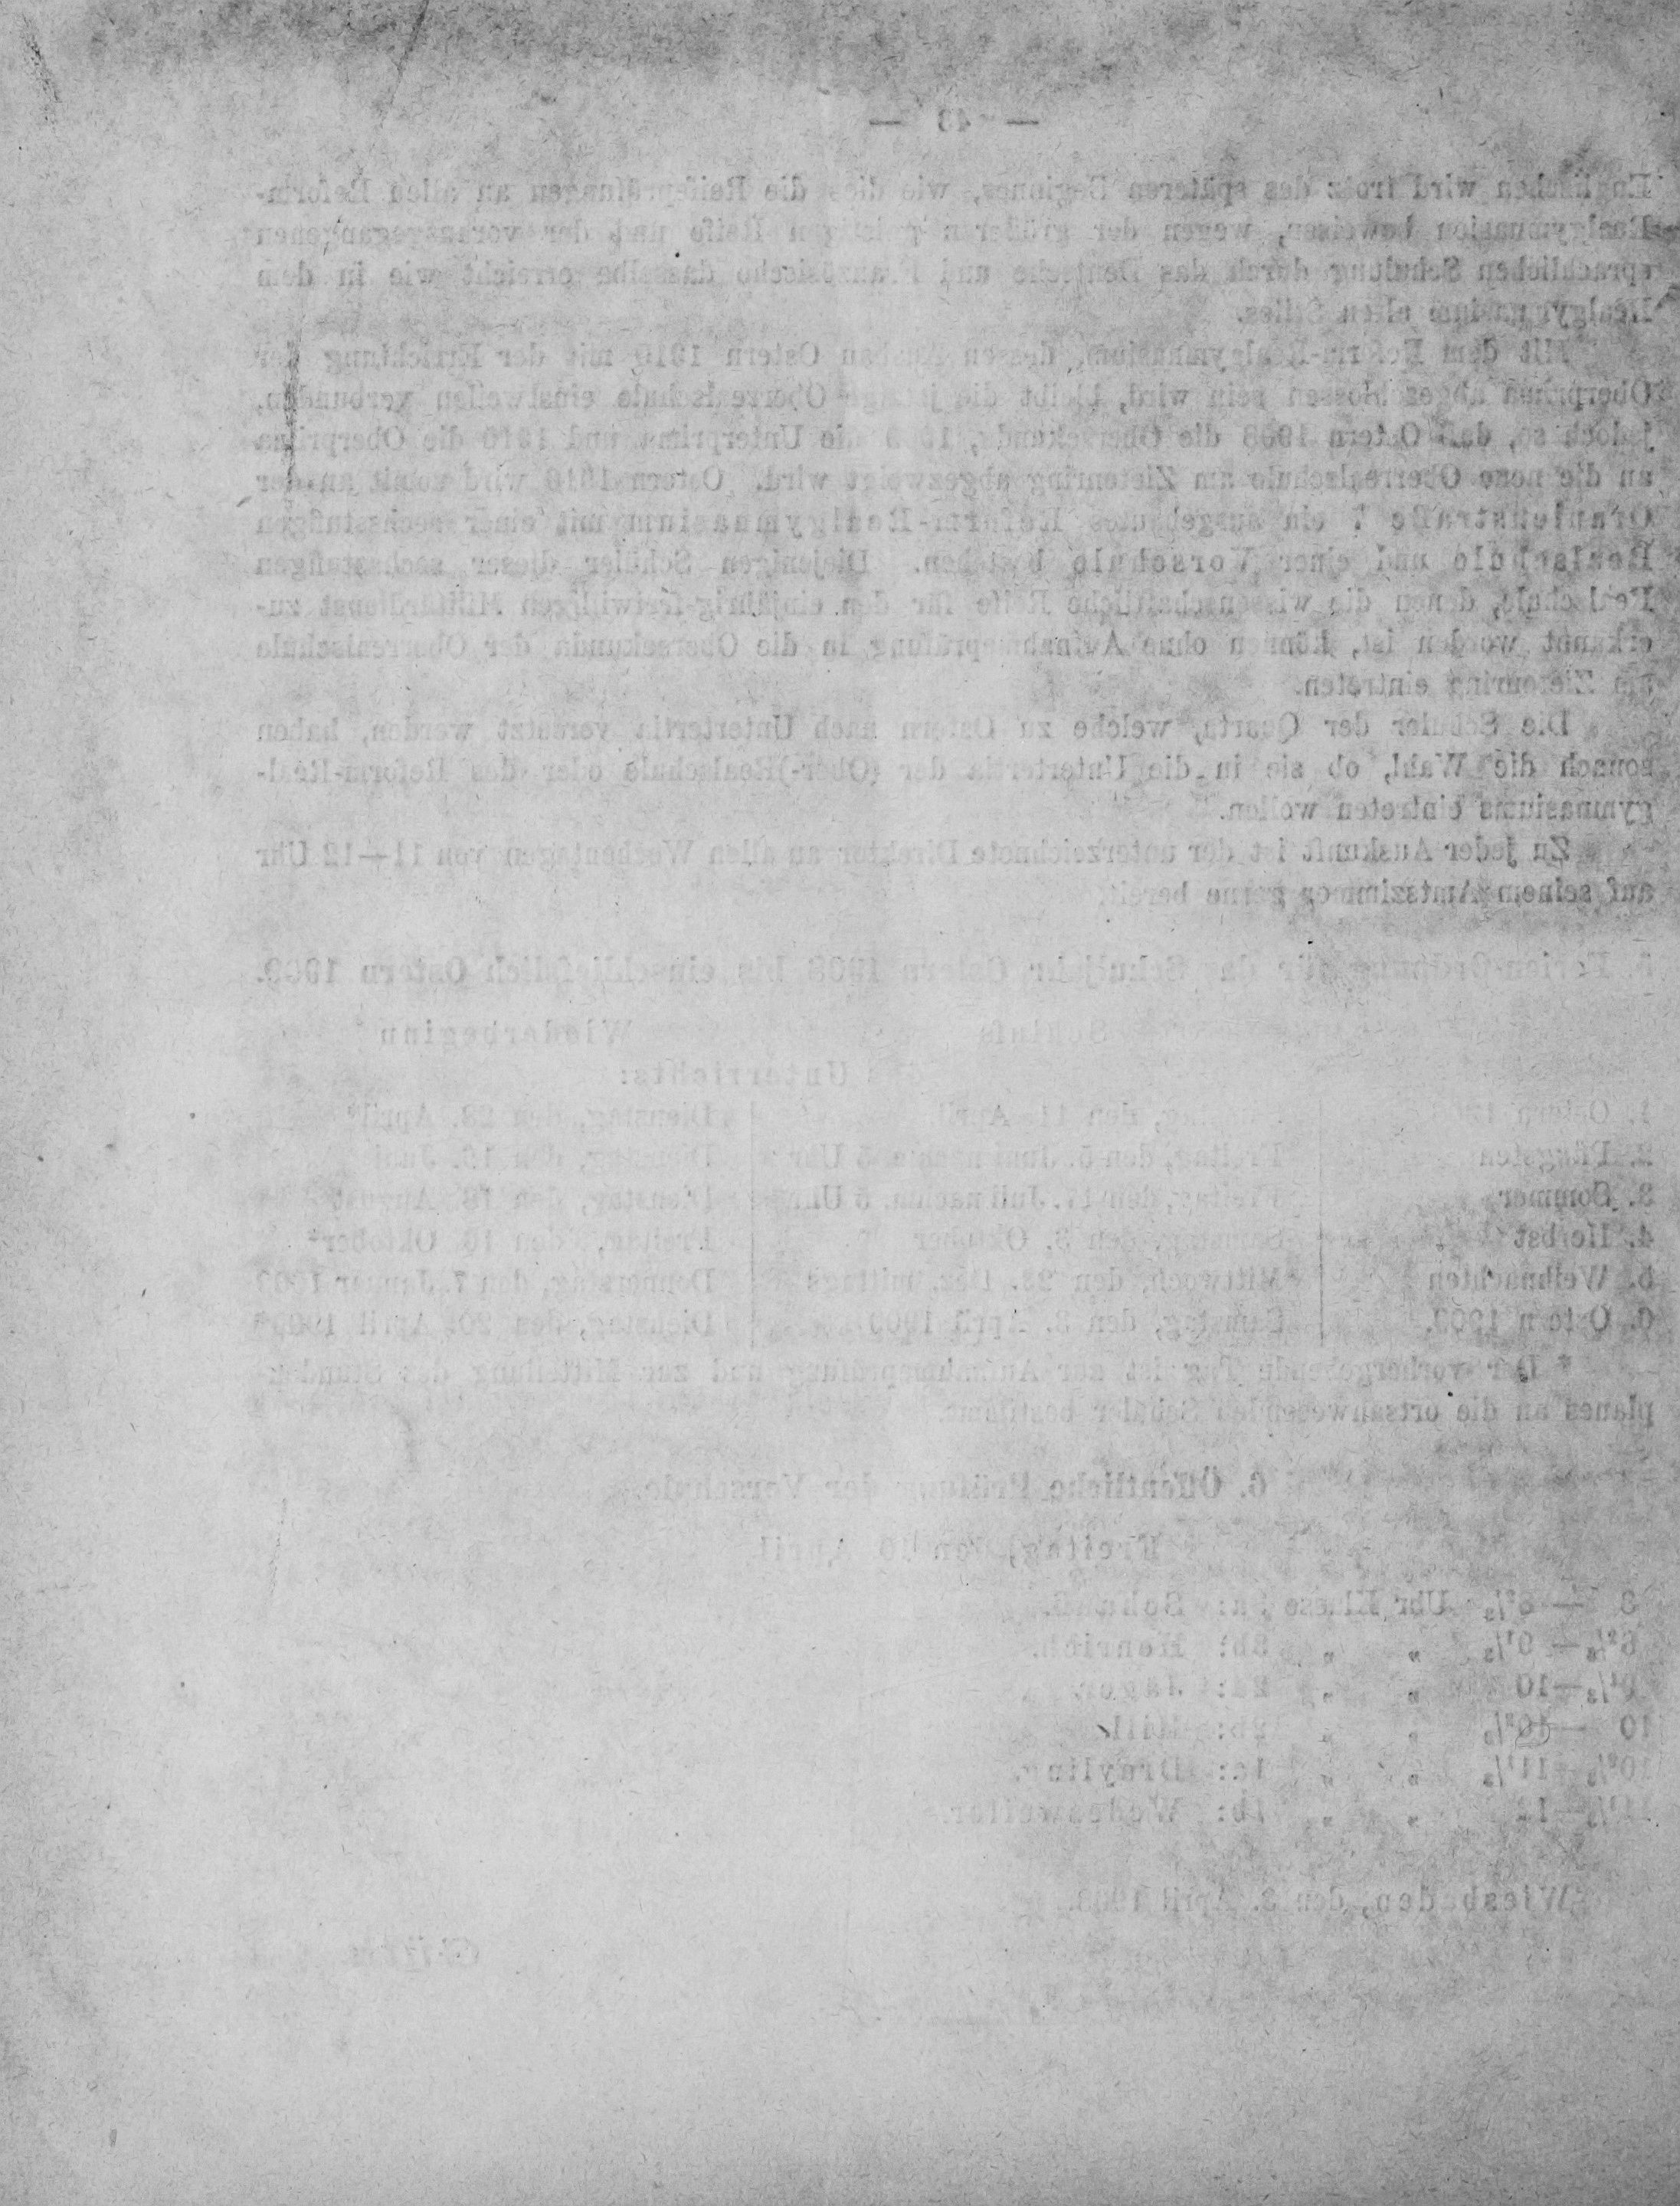 — 43 —
Englischen wird trotz des späteren Beginnes, wie dies die Reifeprüfungen an allen Reform-
Realgymnasien beweisen, wegen der größeren geistigen Reife und der vorausgegangenen
sprachlichen Schulung durch das Deutsche und Französische dasselbe erreicht wie in dem
Realgymnasium alten Stiles.
Mit dem Reform-Realgymnasium, dessen Ausbau Ostern 1910 mit der Einrichtung der
Oberprima abgeschlossen sein wird, bleibt die jetzige Oberrealschule einstweilen verbunden,
jedoch so, daß Ostern 1908 die Obersekunda, 1909 die Unterprima und 1910 die Oberprima
an die neue Oberrealschule am Zietenring abgezweigt wird. Ostern 1910 wird somit an der
Oranienstraße 7 ein ausgebautes Reform-Realgymnasium mit einer sechsstufigen
Realschule und einer Vorschule bestehen. Diejenigen Schüler dieser sechsstufigen
Realschule, denen die wissenschaftliche Reife für den einjährig-freiwilligen Militärdienst zu-
erkannt worden ist, können ohne Aufnahmeprüfung in die Obersekunda der Oberrealschule
am Zietenring eintreten.
Die Schüler der Quarta, welche zu Ostern nach Untertertia versetzt werden, haben
sonach die Wahl, ob sie in die Untertertia der (Ober-)Realschule oder des Reform-Real-
gymnasiums eintreten wollen.
Zu jeder Auskunft ist der unterzeichnete Direktor an allen Wochentagen von 11—12 Uhr
auf seinem Amtszimmer gerne bereit.
5. Ferien-Ordnung für das Schuljahr Ostern 1908 bis einschließlich Ostern 1909.
Schluß Wiederbeginn
des Unterrichts:
1. Ostern den 11. April Dienstag, den 28. April*
2. Pfingsten Freitag, den 5. Juni nachm. 5 Uhr Dienstag, den 16. Juni
3. Sommer Freitag, den 17. Juli nachm. 5 Uhr Dienstag, den 18. August
4. Herbst Samstag, den 3. Oktober Freitag, den 16. Oktober*
5. Weihnachten Mittwoch, den 23. Dez. mittags Donnerstag, den 7. Januar 1909
6. Ostern 1909. Samstag, den 3. April 1909 Dienstag, den 20. April 1909*
* Der vorhergehende Tag ist zur Aufnahmeprüfung und zur Mitteilung des Stunden-
planes an die ortsanwesenden Schüler bestimmt.
6. Öffentliche Prüfung der Vorschule.
Freitag, den 10. April.
8 — 8²/₃ Uhr Klasse
8²/₃— 9¹/₃ „ „ 3b: Henrich.
9¹/₃—10 „ „ 2a:
10 —10²/₃ „ „ 2b:
10²/₃—11¹/₃ „ „ 1c:
11¹/₃—12 „ „ 1b:
Wiesbaden, den 3. April 1908.